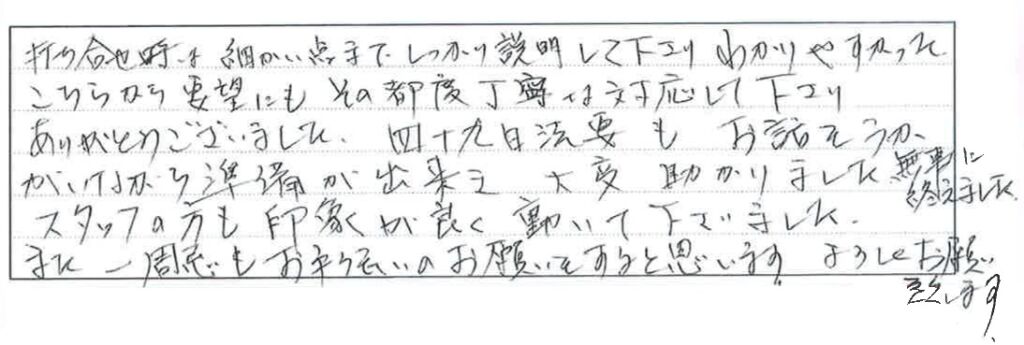 打ち合せ時は細かい点までしっかり説明して下さり わかりやすかった
こちらから要望にもその都度丁寧な対応して下さり
ありがとうございました。四十九日法要も お話をうか
がいながら準備が出来て 大変助かりました 無事に
終えました
スタッフの方も印象が良く動いて下さいました。
また一周忌もお手伝いのお願いをすると思います よろしくお願い
致します。